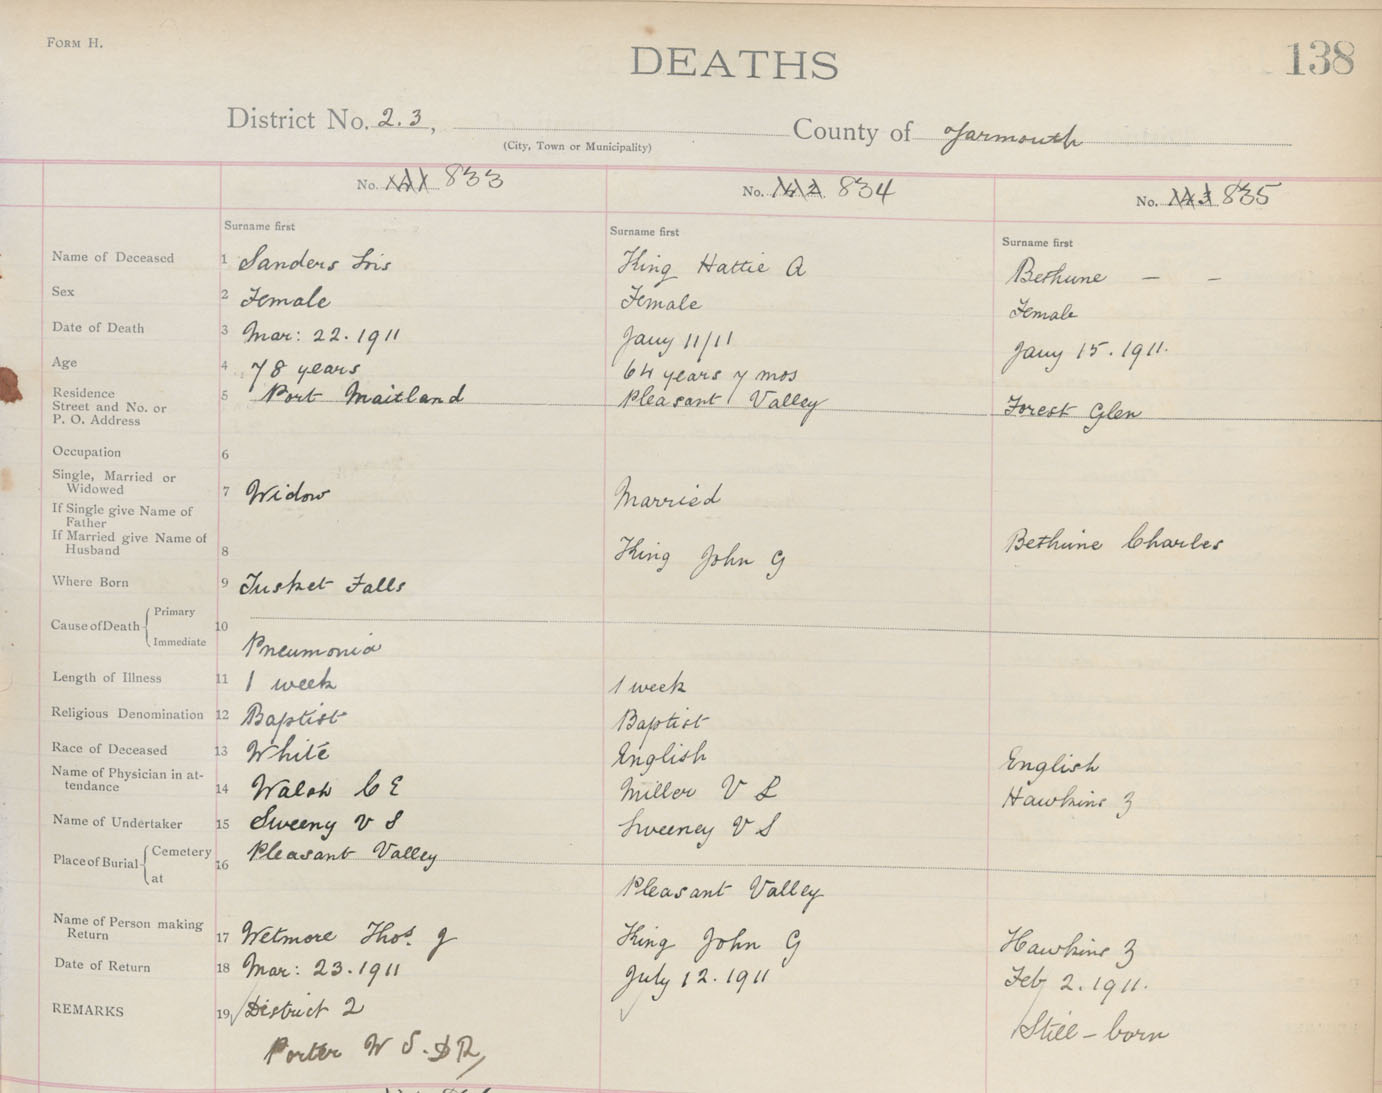 FORM H.
DEATHS
138
District No. 2.3, County of Yarmouth
(City, Town or Municipality)
No. 141 833 No. 142 834 No. 143 835
Surname first Surname first Surname first
Name of Deceased 1 Sanders Iris King Hattie A Bethune — -
Sex 2 Female Female Female
Date of Death 3 Mar: 22.1911 Jany 11/11 Jany 15.1911.
Age 4 78 years 64 years 7 mos
Residence Street and No. or P. O. Address 5 Port Maitland Pleasant Valley Forest Glen
Occupation 6
Single, Married or Widowed 7 Widow Married
If Single give Name of Father
If Married give Name of Husband 8 King John G Bethune Charles
Where Born 9 Tusket Falls
Cause of Death Primary 10
Immediate Pneumonia
Length of Illness 11 1 week 1 week
Religious Denomination 12 Baptist Baptist
Race of Deceased 13 White English English
Name of Physician in attendance 14 Walsh C E Miller V L Hawkins Z
Name of Undertaker 15 Sweeny V S Sweeney V S
Place of Burial Cemetery 16 Pleasant Valley
at Pleasant Valley
Name of Person making Return 17 Wetmore Thos. J King John G Hawkins Z
Date of Return 18 Mar: 23.1911 July 12.1911 Feb 2.1911.
REMARKS 19 District 2 Still-born
Porter W S. DR,